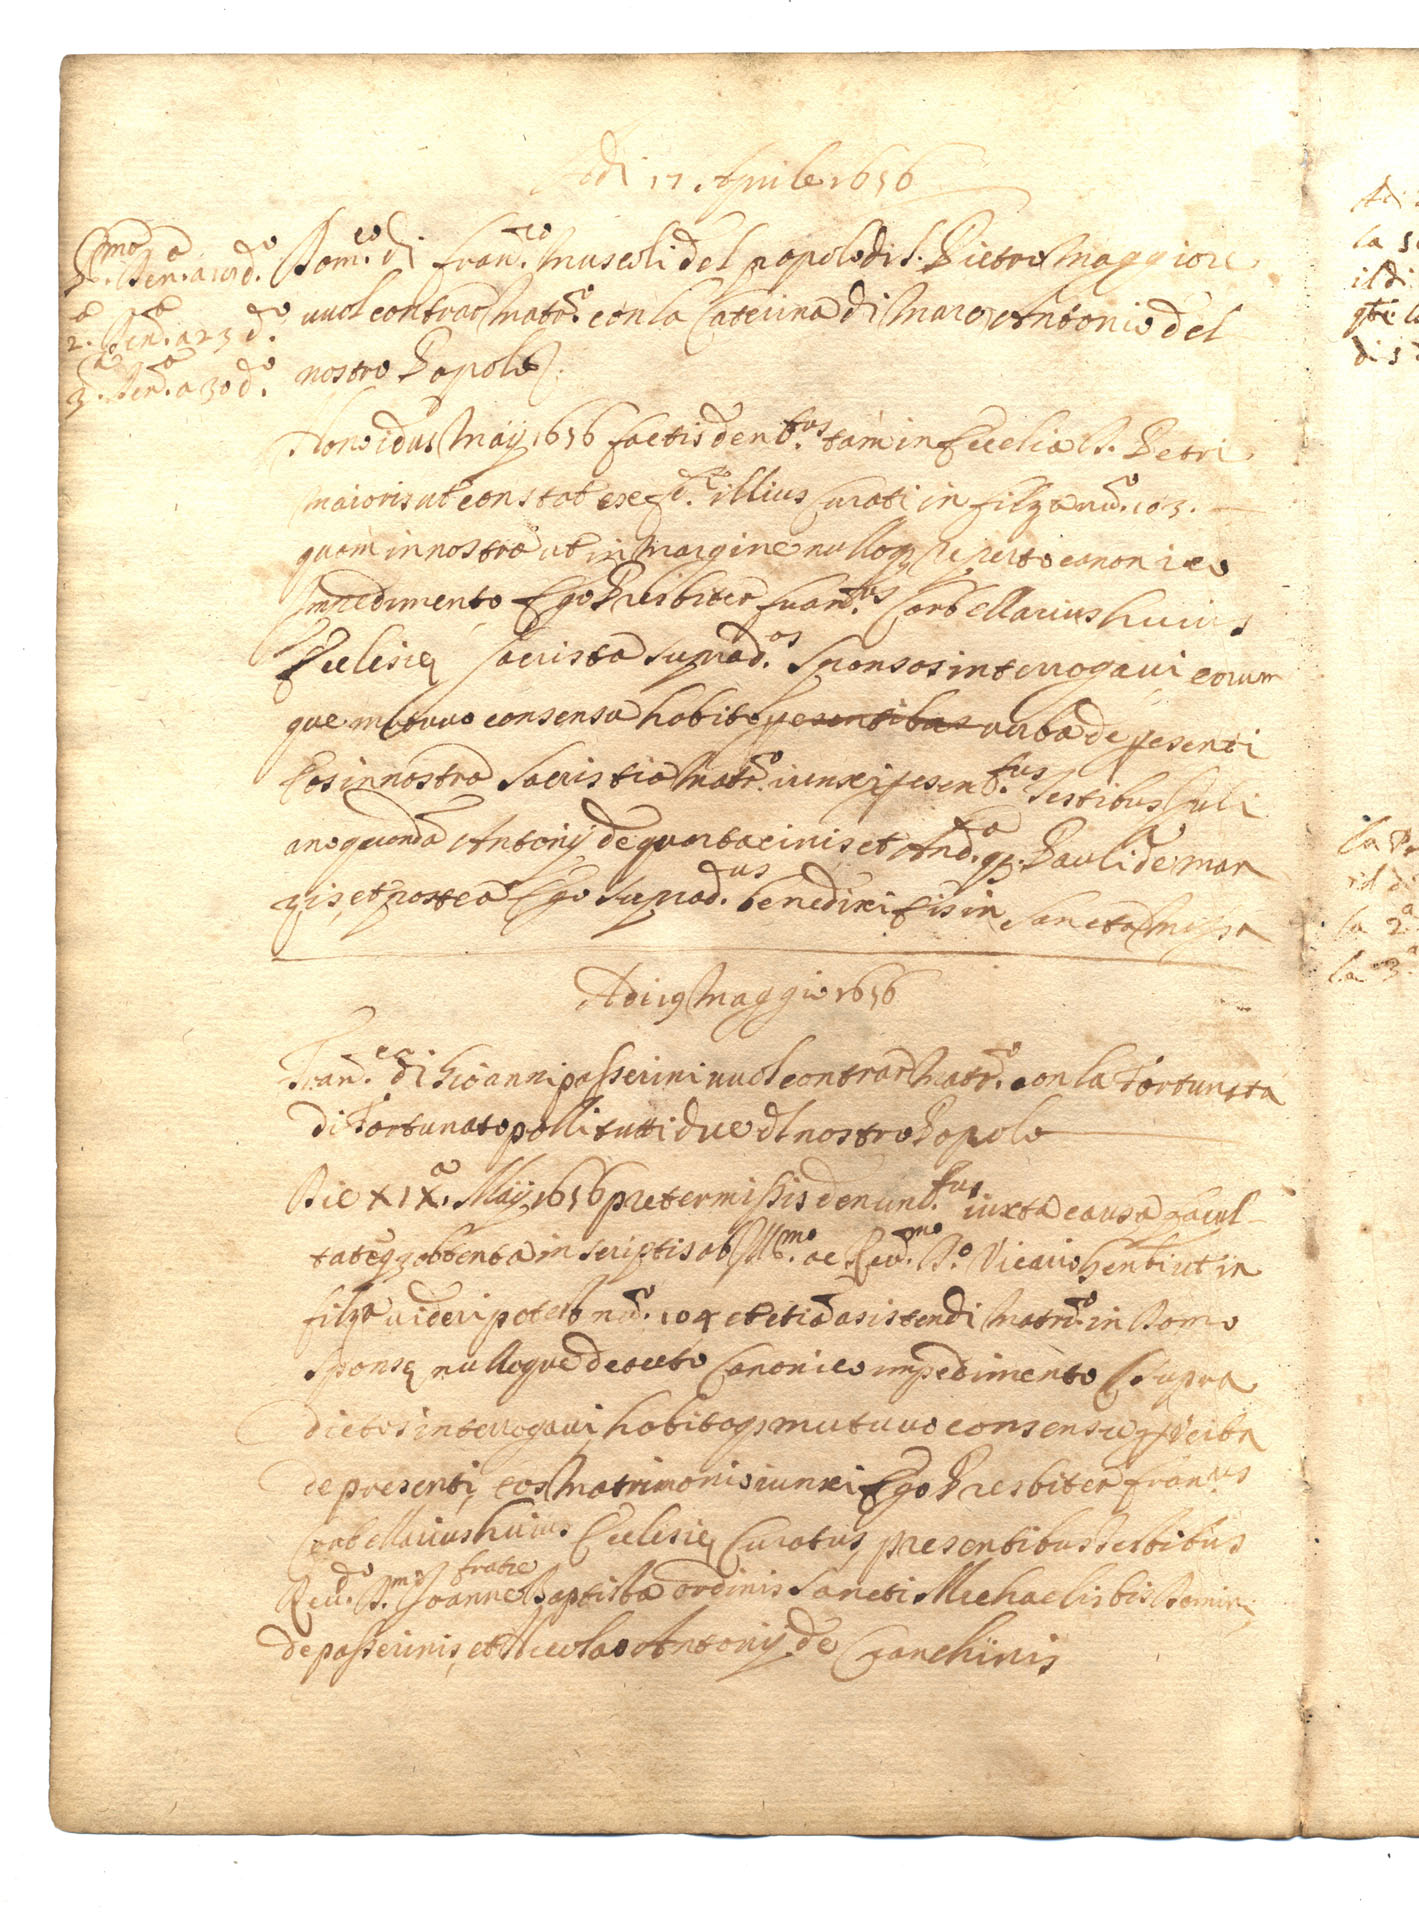 Adi 17 Aprile 1656
p.mo Den.a a 19 d.o
2.a Den.a a 23 d.o
3.a Den.a a 30 d.o
Dom.co di Fran.co Muscoli del popolo di S. Pietro Maggiore
vuol contrar Matr.o con la Caterina di Marc Antonio del
nostro Popolo
idus Maij 1656 factis den.bus tam in Ecclia S. Petri
maioris ut constat ex illius Curati in filza nu.o 103.
quam in nostra ut in Margine nulloq reperto canonico
Impedimento Ego Presbiter Fran.us Corbellarius huius
Ecclesie sacrista suprad.os sponsos interrogaui eorum
que mutuuo consensu habito presentibus uerba de presenti
Eos in nostra Sacristia Matr.o iunxi presen.bus Testibus Juli
ano quonda Antonij de quartacinis et And.a q. Pauli de man
zis, et postea Ego suprad.us benedixi Eis in Sancta Missa
Adi 19 Maggio 1656
Fran.co di Gioanni passerini vuol contrar Matr.o con la Fortunata
di Fortunato polli tutti due dl nostro Popolo
Die XIX.a Maij 1656 pretermissis denun.bus iuxta causa facul-
tateq obtenta in scriptis ab Ill.mo ac Reu.mo D.o Vicario ut in
filza uideri potest nu.o 104 et etia asistendi Matr.o in Domo
sponse nulloque detecto Canonico impedimento supra
dictos interrogaui habitoq mutuuo consensu p uerba
de presenti, eos Matrimonio iunxi Ego Presbiter Fran.us
Corbellarius huius Ecclesie Curatus, presentibus Testibus
Reu.do D. fratre Joanne Baptista ordinis Sancti Michaelis
de passerinis, et Nicolao Antonij de Cianchinis
Adi
la
il di
la
di
la
il di
la 2.a
la 3.a